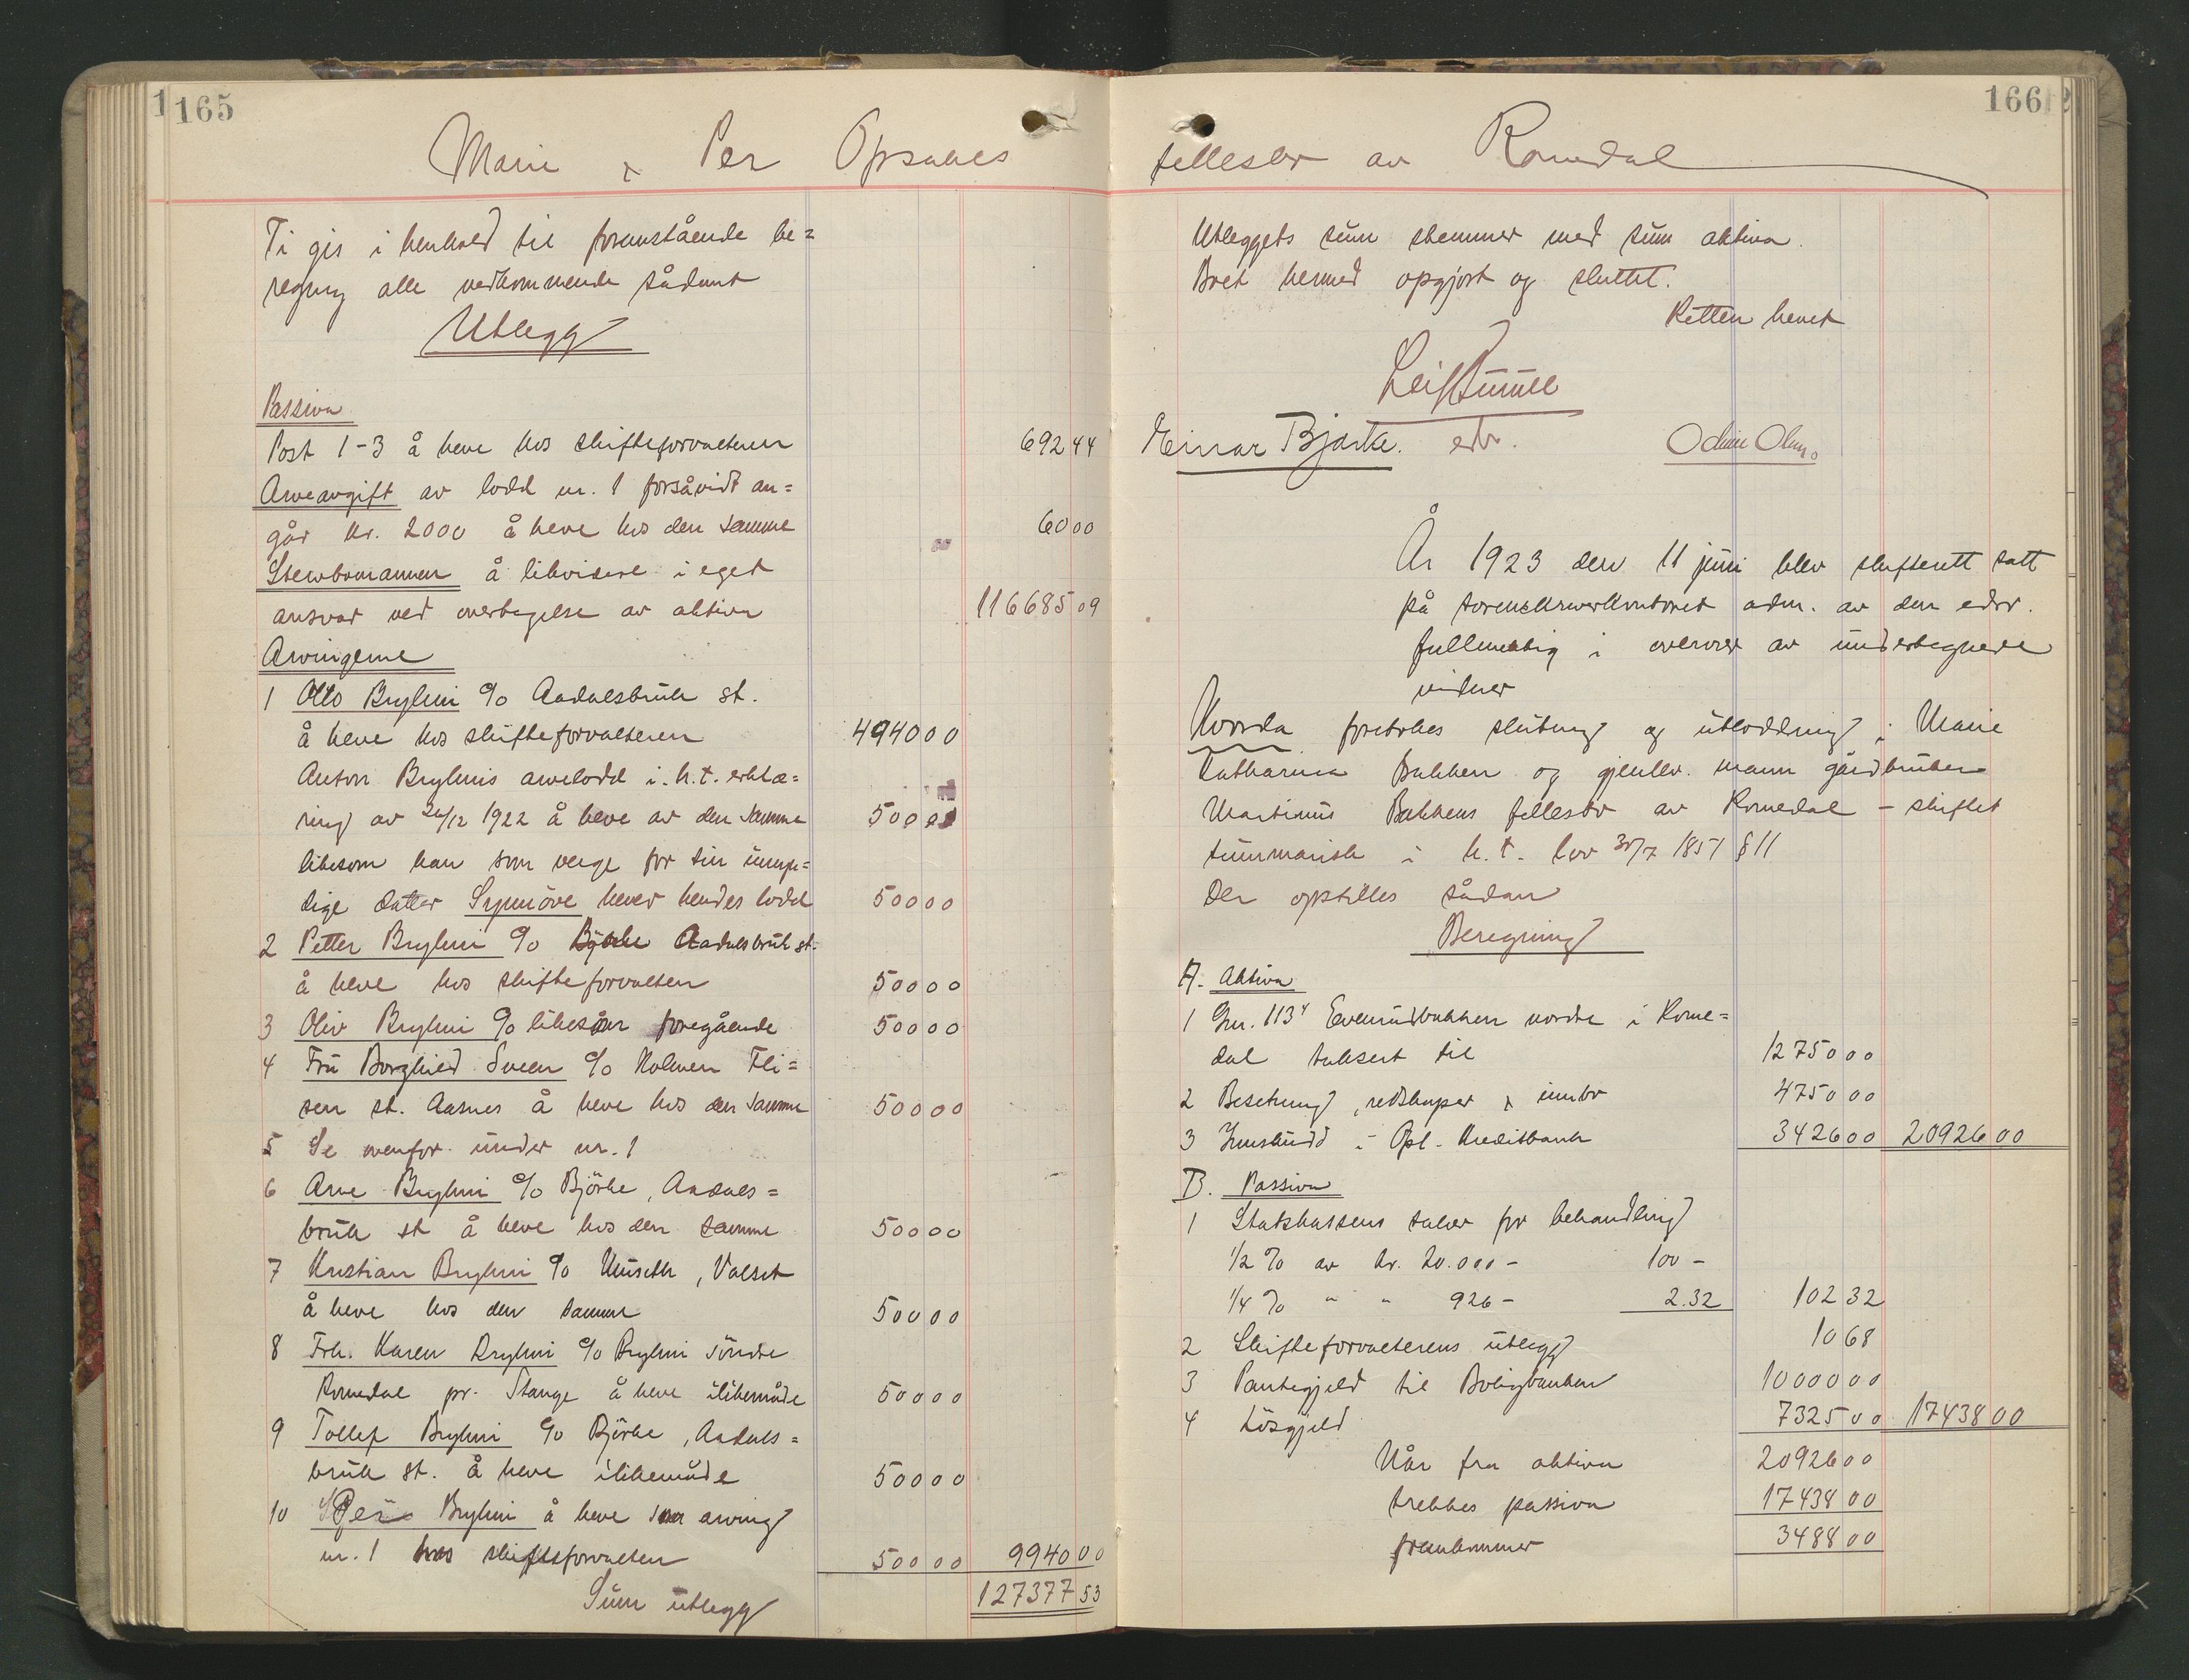 165
Marie & Per Opsahls
Ti gis i henhold til foranstående be=
regng alle vedkommende sådant
Utlegg
Passiva
Post 1-3 å heve hos skifteforvalteren 692 44
Arveavgift av lodd nr. 1 forsåvidt an=
går kr. 2000 å heve hos den samme 60 00
Sterbomannen å likvidere i eget
ansvar ved overtagelse av aktiva 116685 09
Arvingerne
1 Otto Bryhni c/o Aadalsbruk st.
å heve hos skifteforvalteren 4940 00
Anton Bryhnis arvelodd i. h. t. erklæ=
ring av 26/12 1922 å heve av den samme 500 00
likesom han som verge for sin umyn=
dige datter Synnöve hever hendes lodd 500 00
2 Petter Bryhni c/o Björke Aadalsbruk st.
å heve hos skifteforvalten 500 00
3 Oliv Bryhni c/o likesom foregående 500 00
4 Fru Borghild Sveen c/o Holmen Fli=
sen st. Aasnes å heve hos den samme 500 00
5 Se ovenfor under nr. 1
6 Arne Bryhni c/o Björke, Aadals=
bruk st å heve hos den samme 500 00
7 Kristian Bryhni c/o Museth, Valset
å heve hos den samme 500 00
8 Frk. Karen Bryhni c/o Bryhni söndre
Romedal pr. Stange å heve ilikemåde 500 00
9 Tollef Bryhni c/o Björke, Aadals=
bruk st. å heve ilikemåde 500 00
10 Per Bryhni å heve som arving
nr. 1 hos skifteforvalten 500 00 9940 00
Sum utlegg 127377 53
166
fellesbo av Romedal
Utleggets sum stemmer med sum aktiva.
Boet hermed opgjort og sluttet.
Retten hevet
Leif
Einar Bjarke. edsv. Odin Olsen
År 1923 den 11 juni blev skifterett satt
på sorenskriverkontoret adm. av den edsv.
fullmektig i overvær av undertegnede
vidner
Hvorda foretokes slutning og utlodding i Marie
Katharina Bakken og gjenlev. mann gårdbruker
Martinus Bakkens fellesbo av Romedal - skiftet
summarisk i h. t. lov 30/7 1851 § 11
Der opstilles sådan
Beregning
A. Aktiva
1 Gnr. 113⁴ Evenrudbakken nordre i Rome=
dal taksert til 12750 00
2 Besetning, redskaper & innbo 4750 00
3 Innskudd i Opl. Kreditbank 3426 00 20926 00
B. Passiva
1 Statskassens salær for behandling
1/2 % av kr. 20.000 - 100 -
1/4 % " " 926 - 2.32 102 32
2 Skifteforvalterens utlegg 10 68
3 Pantegjeld til Boligbanken 10000 00
4 Lösgjeld 7325 00 17438 00
Når fra aktiva 20926 00
trekkes passiva 17438 00
fremkommer 3488 00